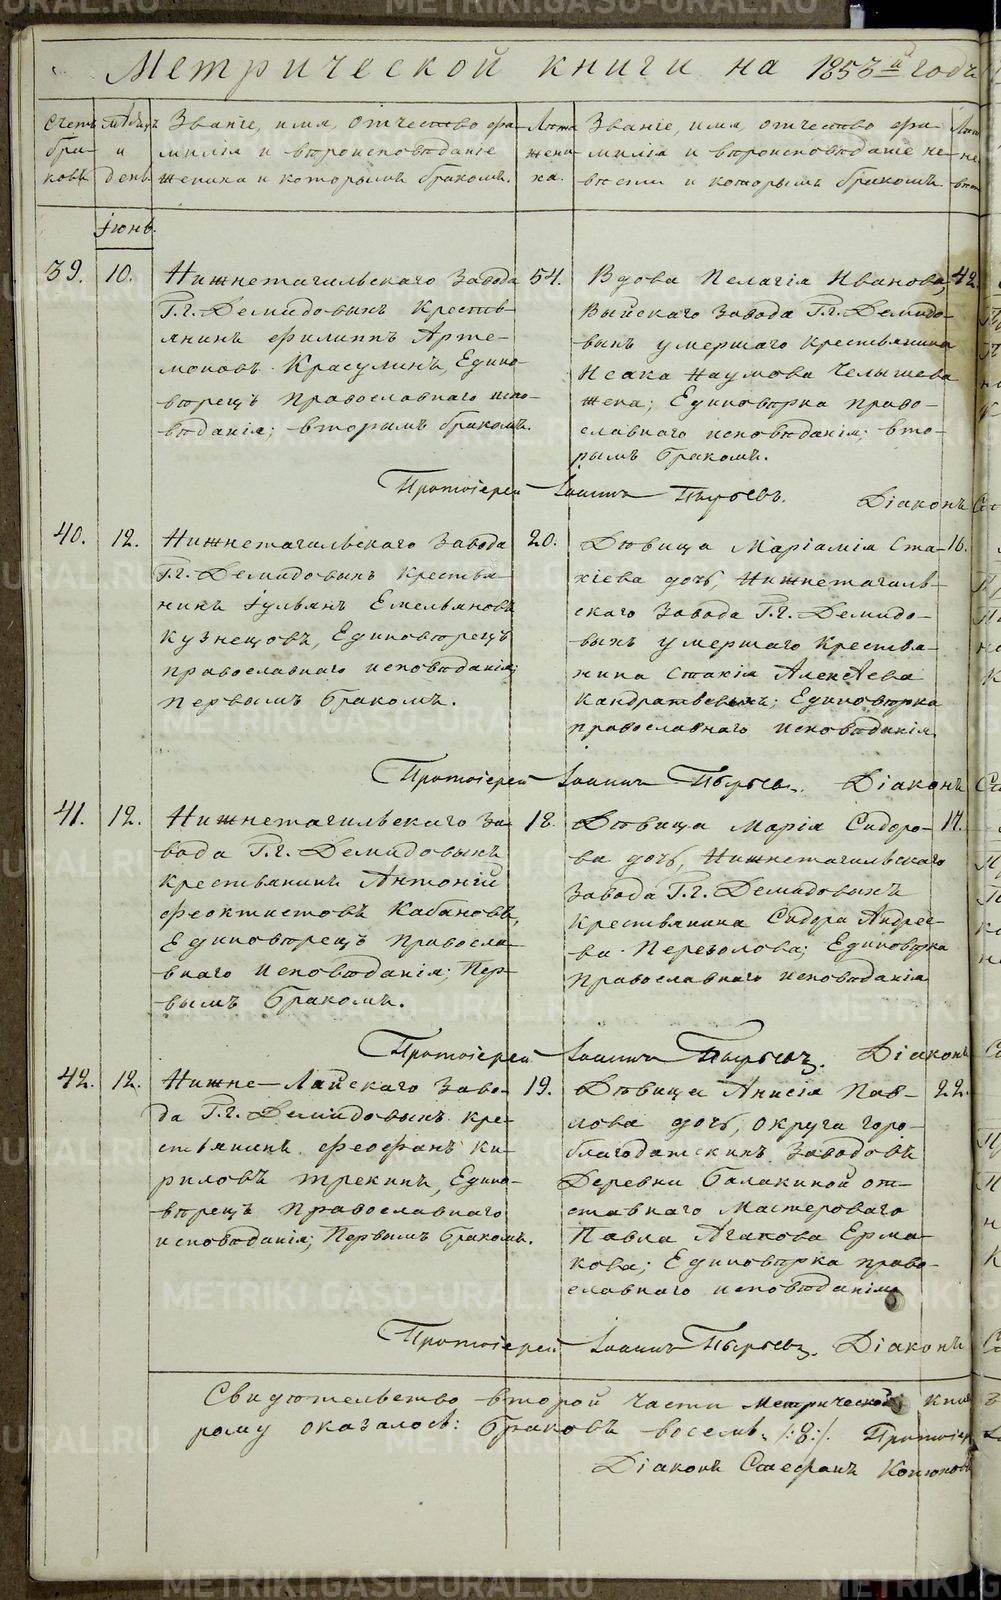 Метрической книги на 1853й годъ
Счетъ браковъ
Мѣсяцъ и день
Званіе, имя, отчество, фамилія и вѣроисповѣданіе жениха и которымъ бракомъ.
Лѣта жениха.
Званіе, имя, отчество, фамилія и вѣроисповѣданіе невѣсты и которымъ бракомъ
Іюнь.
39.
10.
Нижнетагильскаго Завода
Г.г. Демидовыхъ Кресть-
янинъ Филиппъ Арте-
моновъ Красулинъ, Едино-
вѣрецъ Православнаго испо-
вѣданія; вторымъ бракомъ.
54.
Вдова Пелагія Иванова,
Выйскаго Завода Г.г. Демидо-
выхъ умершаго Крестьянина
Исака Наумова Челышева
жена; Единовѣрка право-
славнаго исповѣданія; вто-
рымъ бракомъ.
42.
Протоіерей Іоаннъ Пырьевъ. Діаконъ
40.
12.
Нижнетагильскаго Завода
Г.г. Демидовыхъ Крестья-
нинъ Іульянъ Емельяновъ
Кузнецовъ, Единовѣрецъ
православнаго исповѣданія;
первымъ бракомъ.
20.
Дѣвица Маріамія Ста-
хіева дочь, Нижнетагиль-
скаго Завода Г.г. Демидо-
выхъ умершаго Крестья-
нина Стахія Алексѣева
Кандратьевыхъ; Единовѣрка
православнаго исповѣданія.
16.
Протоіерей Іоаннъ Пырьевъ. Діаконъ
41.
12.
Нижнетагильскаго За-
вода Г.г. Демидовыхъ
Крестьянинъ Антоній
Феоктистовъ Кабановъ,
Единовѣрецъ Правосла-
внаго исповѣданія; Пер-
вымъ бракомъ.
18.
Дѣвица Марія Сидоро-
ва дочь, Нижнетагильскаго
Завода Г.г. Демидовыхъ
Крестьянина Сидора Андрее-
ва Переволова; Единовѣрка
Православнаго исповѣданія
17.
Протоіерей Іоаннъ Пырьевъ. Діаконъ
42.
12.
Нижне-Лайскаго Заво-
да Г.г. Демидовыхъ кре-
стьянинъ Феофанъ Ки-
риловъ Трекинъ, Едино-
вѣрецъ Православнаго
исповѣданія; Первымъ бракомъ.
19.
Дѣвица Анисія Пав-
лова дочь, округа Горо-
благодатскихъ Заводовъ
Деревни Балакиной от-
ставнаго Мастероваго
Павла Агапова Ерма-
кова; Единовѣрка право-
славнаго исповѣданія
22.
Протоіерей Іоаннъ Пырьевъ. Діаконъ
Свидѣтельство второй части Метрической
рому оказалось: браковъ восемь. /:8:/.
Діаконъ Стефанъ
METRIKI.GASO-URAL.RU